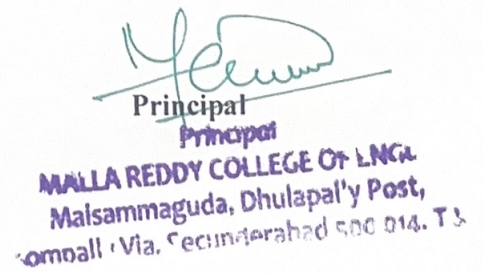 Principal
Principal
MALLA REDDY COLLEGE OF ENGG.
Maisammaguda, Dhulapal'y Post,
Via. Secunderabad 500 014. T.S